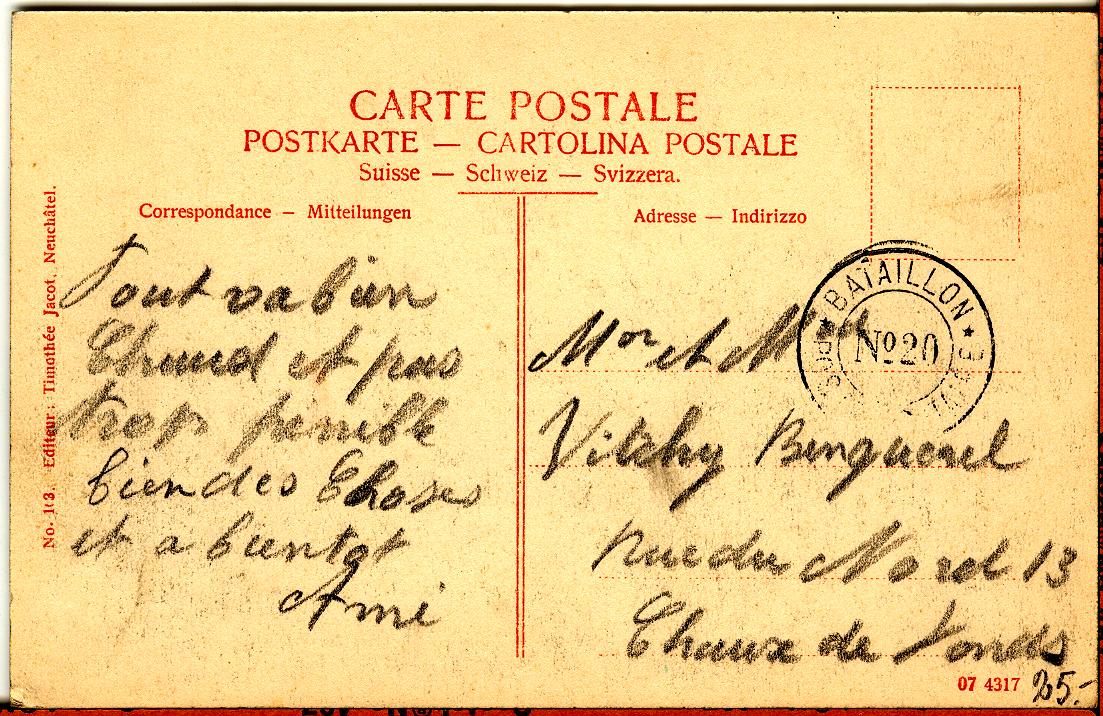 CARTE POSTALE
POSTKARTE — CARTOLINA POSTALE
Suisse — Schweiz — Svizzera.
Correspondance — Mitteilungen
Adresse — Indirizzo
No. 103. Editeur: Timothée Jacot, Neuchâtel.
Tout va bien
Chaud et pas
trop penible
bien des choses
et a bientot
Ami
BATAILLON
No 20
Mor et M
Vitchy Benguerel
rue du Nord 13
Chaux de fonds
07 4317
25.-